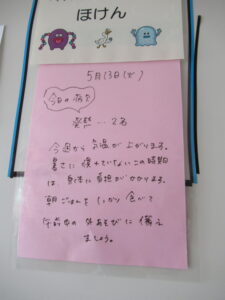 ほけん
5月13日(火)
今日の病欠
発熱…2名
今週から気温が上がります。
暑さに慣れていないこの時期
は、身体に負担がかかります。
朝ごはんをしっかり食べて
午前中の外あそびに備え
ましょう。